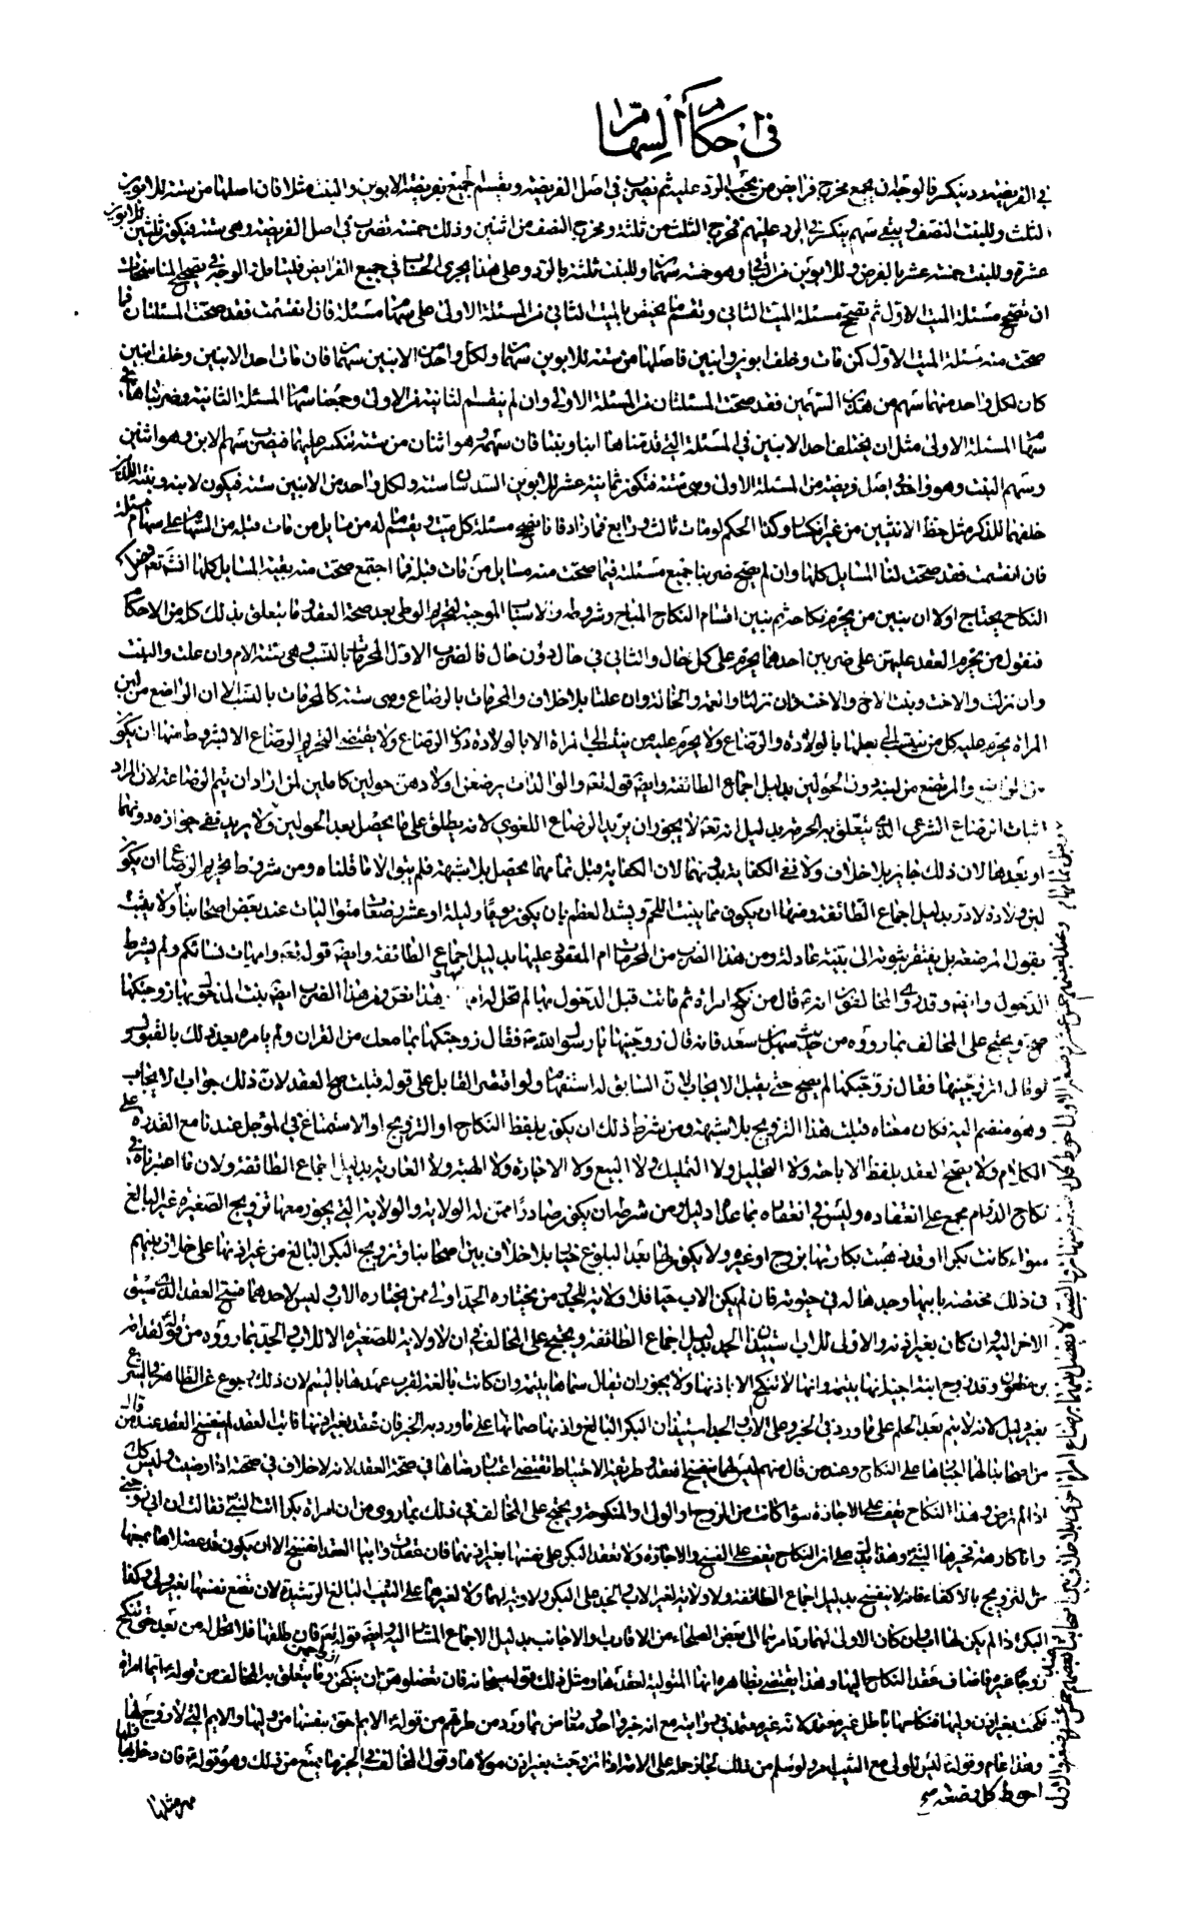 في احكام السهام
في الفريضة رد ينكسر فالوجه ان يجمع مخرج فرائض من يجب الرد عليه ثم تضرب في اصل الفريضة ويقسم الجميع فريضة الابوين والبنت مثلا فان اصلها من ستة للابوين
الثلث وللبنت النصف ويبقى سهم ينكسر في الرد عليهم فمخرج الثلث من ثلثة ومخرج النصف من اثنين وذلك خمسة تضرب في اصل الفريضة وهي ستة فيكون ثلثين للابوين
عشرة وللبنت خمسة عشر بالفرض وللابوين من الباقي وهو خمسة سهمان وللبنت ثلثة بالرد وعلى هذا يجري الحساب في جميع الفرائض فليتأمل الوجه في تصحيح المناسخات
ان تصحح مسئلة الميت الاول ثم تصحح مسئلة الميت الثاني وتقسم ما يختص بالميت الثاني من المسئلة الاولى على سهام مسئلته فان انقسمت فقد صحت المسئلتان مما
صحت منه مسئلة الميت الاول كمن مات وخلف ابوين وابنين فاصلها من ستة للابوين سهمان ولكل واحد من الابنين سهمان فان مات احد الابنين وخلف ابنين
كان لكل واحد منهما سهم من هذين السهمين فقد صحت المسئلتان من المسئلة الاولى وان لم ينقسم الثانية من الاولى وجمعنا سهام المسئلة الثانية وضربناها في
سهام المسئلة الاولى مثل ان يخلف احد الابنين في المسئلة التي قدمناها ابنا وبنتا فان سهمه وهو اثنان من ستة تنكسر عليهما فيضرب سهم الابن وهو اثنين
وسهم البنت وهو واحد في اصل فريضة من المسئلة الاولى وهي ستة فتكون ثمانية عشر للابوين السدسان ستة ولكل واحد من الابنين ستة فيكون لابنه وبنته اللذين
خلفهما للذكر مثل حظ الانثيين من غير انكسار وكذا الحكم لو مات ثالث ورابع فما زاد فانا نصحح مسئلة كل ميت ونقسم ما له من مسايل من مات قبله من السهام على سهام مسئلته
فان انقسمت فقد صحت لنا المسايل كلها وان لم يصح ضربنا جميع مسئلته فيما صحت منه مسايل من مات قبله فما اجتمع صحت منه بقية المسايل كلها انشاء تعالى
النكاح يحتاج اولا ان يبين من يحرم نكاحه ثم يبين اقسام النكاح المباح وشروطه والاسباب الموجبة لتحريم الوطى بعد صحة العقد وما يتعلق بذلك كله من الاحكام
فنقول من يحرم العقد عليهن على ضربين احدهما يحرم على كل حال والثاني في حال دون حال فالضرب الاول المحرمات بالنسب وهي ستة الام وان علت والبنت
وان نزلت والاخت وبنت الاخ والاخت وان نزلتا والعمة والخالة وان علتا بلا خلاف والمحرمات بالرضاع وهي ستة كالمحرمات بالنسب الا ان الراضع من لبن
المرأة يحرم عليه كل من ينتسب الى بعلها بالولادة والرضاع ولا يحرم عليه من ينتسب الى المرأة الا بالولادة دون الرضاع ولا يقتضي التحريم الرضاع الا بشروط منها ان يكون
سن الراضع والمرتضع من لبنه دون الحولين بدليل اجماع الطائفة وايضا قوله تعالى والوالدات يرضعن اولادهن حولين كاملين لمن اراد ان يتم الرضاعة لان المراد
اثبات الرضاع الشرعي الذي يتعلق به الحرمة بدليل انه تعالى لا يجوز ان يريد الرضاع اللغوي لانه يطلق على ما يحصل بعد الحولين ولا يريد نفي جوازه دونهما
او بعدهما لان ذلك جايز بلا خلاف ولا نفي الكفاية بدونهما لان الكفاية قبل تمامهما يحصل بلا شبهة فلم يبق الا ما قلناه ومن شروط تحريم الرضاع ان يكون
لبن ولادة لا در بدليل اجماع الطائفة ومنها ان يكون مما ينبت اللحم ويشد العظم بان يكون يوما وليلة او عشر رضعات متواليات عند بعض اصحابنا ولا يثبت
بقول المرضعة بل يفتقر ثبوته الى بينة عادلة ومن هذا الضرب من المحرمات ام المعقود عليها بدليل اجماع الطائفة وايضا قوله تعالى وامهات نسائكم ولم يشرط
الدخول وايضا وقد روى المخالفون انه قال من نكح امرأة ثم ماتت قبل الدخول بها لم تحل له امها وهذا نص ومن هذا الضرب ايضا بنت المدخول بها زوجتكها
صح ويحتج على المخالف بما رووه من حديث سهل بن سعد فانه قال زوجنيها يا رسول الله فقال زوجتكها بما معك من القران ولم يامره بعد ذلك بالقبول
لو قال اتزوجنيها فقال زوجتكها لم يصح حتى يقبل الايجاب لان السابق له استفهام ولو اقتصر القابل على قوله قبلت صح العقد لان ذلك جواب الايجاب
وهو منضم اليه فكان معناه قبلت هذا التزويج بلا شبهة ومن شرط ذلك ان يكون بلفظ النكاح او التزويج او الاستمتاع في المؤجل عندنا مع القدرة على
الكلام ولا يصح العقد بلفظ الاباحة ولا التحليل ولا التمليك ولا البيع ولا الاجارة ولا الهبة ولا العارية بدليل اجماع الطائفة ولان ما اعتبرناه في
نكاح الدوام مجمع على انعقاده وليس في انعقاده بما عداه دليل ومن شرطه ان يكون صادرا ممن له الولاية والولاية التي يجوز معها تزويج الصغيرة غير البالغ
سواء كانت بكرا او قد ذهبت بكارتها بزوج او غيره ولا يكون لها بعد البلوغ خيار بلا خلاف بين اصحابنا وتزويج البكر البالغ من غير اذنها على خلاف بينهم
في ذلك مختصة بابيها وجدها له في حيوته فان لم يكن الاب حيا فلا ولاية للجد ومن يختاره الجد اولى ممن يختاره الاب وليس لاحدهما فسخ العقد الذي سبق
الاخر اليه وان كان بغير اذنه والاولى للاب استيذان الجد بدليل اجماع الطائفة ويحتج على المخالف في ان لا ولاية للصغيرة الا للاب والجد بما رووه من قوله لقدامة
بن مظعون وقد زوج ابنة اخيه انها يتيمة وانها لا تنكح الا باذنها ولا يجوز ان يقال سماها يتيمة وان كانت بالغة لقرب عهدها باليتم لان ذلك رجوع عن الظاهر في الشرع
بغير دليل لانه لا يتم بعد الحلم على ما ورد في الخبر وعلى الاب والجد استيذان البكر البالغ واذنها صماتها على ما ورد به الخبر فان عقد بغير اذنها فابت العقد لم ينفسخ العقد عند من قال
من اصحابنا لهما اجبارها على النكاح وعند من قال منهم ليس لهما ينفسخ العقد وطريقة الاحتياط تقتضي اعتبار رضاها في صحة العقد لانه لا خلاف في صحته اذا رضيت وليس كذلك
اذا لم ترض وهذا النكاح يقف على الاجازة سواء كانت من الزوج او الولي او المنكوحة ويحتج على المخالف في ذلك بما روى من ان امراة بكرا اتت النبي فقالت ان ابي زوجني
وانا كارهة فخيرها النبي وهذا يدل على ان النكاح يقف على الفسخ والاجازة ولا تعقد البكر على نفسها بغير اذنهما فان عقدت وابيا العقد انفسخ الا ان يكون قد عضلاها بمنعها
من التزويج بالاكفاء فانه لا ينفسخ بدليل اجماع الطائفة ولا ولاية لغير الاب والجد على البكر ولا ولاية لهما ولا لغيرهما على الثيب البالغ الرشيدة لان تضع نفسها بغير ولي وكذا
البكر اذا لم يكن لها اب وان كان الاولى لهما رد امرهما الى بعض الصلحاء من الاقارب والاجانب بدليل الاجماع المشار اليه وايضا قوله تعالى فان طلقها فلا تحل له من بعد حتى تنكح
زوجا غيره فاضاف عقد النكاح اليها وهذا يقتضي بظاهره انها المتولية لعقدها ومثل ذلك قوله سبحانه فلا تعضلوهن ان ينكحن ازواجهن وما يتعلق به المخالف من قوله ايما امراة
نكحت بغير اذن وليها فنكاحها باطل غير معتمد لانه غير معتمد في روايته مع انه خبر واحد ومعارض بما ورد من طرقهم من قوله الايم احق بنفسها من وليها والايم التي لا زوج لها
وهذا عام وقوله ليس للولي مع الثيب امر ولو سلم من ذلك لجاز حمله على الامة اذا تزوجت بغير اذن مولاها وقول المخالف في الخبر ما يمنع من ذلك وهو قوله فان دخل بها فلها
مهر مثلها
وعند بعضهم خمس عشرة رضعة والاول احوط كل رضعة منها تروي الصبي لا يفصل بينها برضاع امراة اخرى بلا خلاف بين اصحابنا
احوط كل رضعة صح